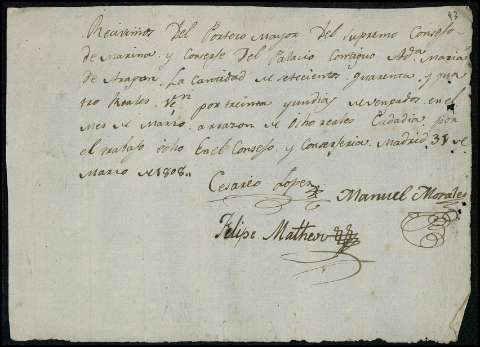 93
Recivimos Del Portero Mayor Del Supremo Consejo
de marina y Conserje Del Palacio Contiguo A Da. Maria
de Aragon, La Cantidad de setecientos quarenta y qua
tro Reales Ven por treinta y un dias devengados en el
mes de Marzo arrazon de Ocho reales Cada dia por
el trabajo echo En el Consejo y Conserjeria Madrid 31 de
Marzo de 1808.,
Cesareo Lopez
Manuel Morales
Felipe Matheu